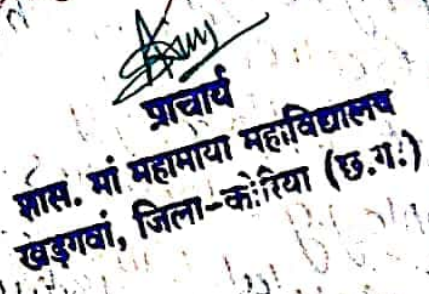 प्राचार्य
शास. मां महामाया महाविद्यालय
खड़गवां, जिला-कोरिया (छ.ग.)